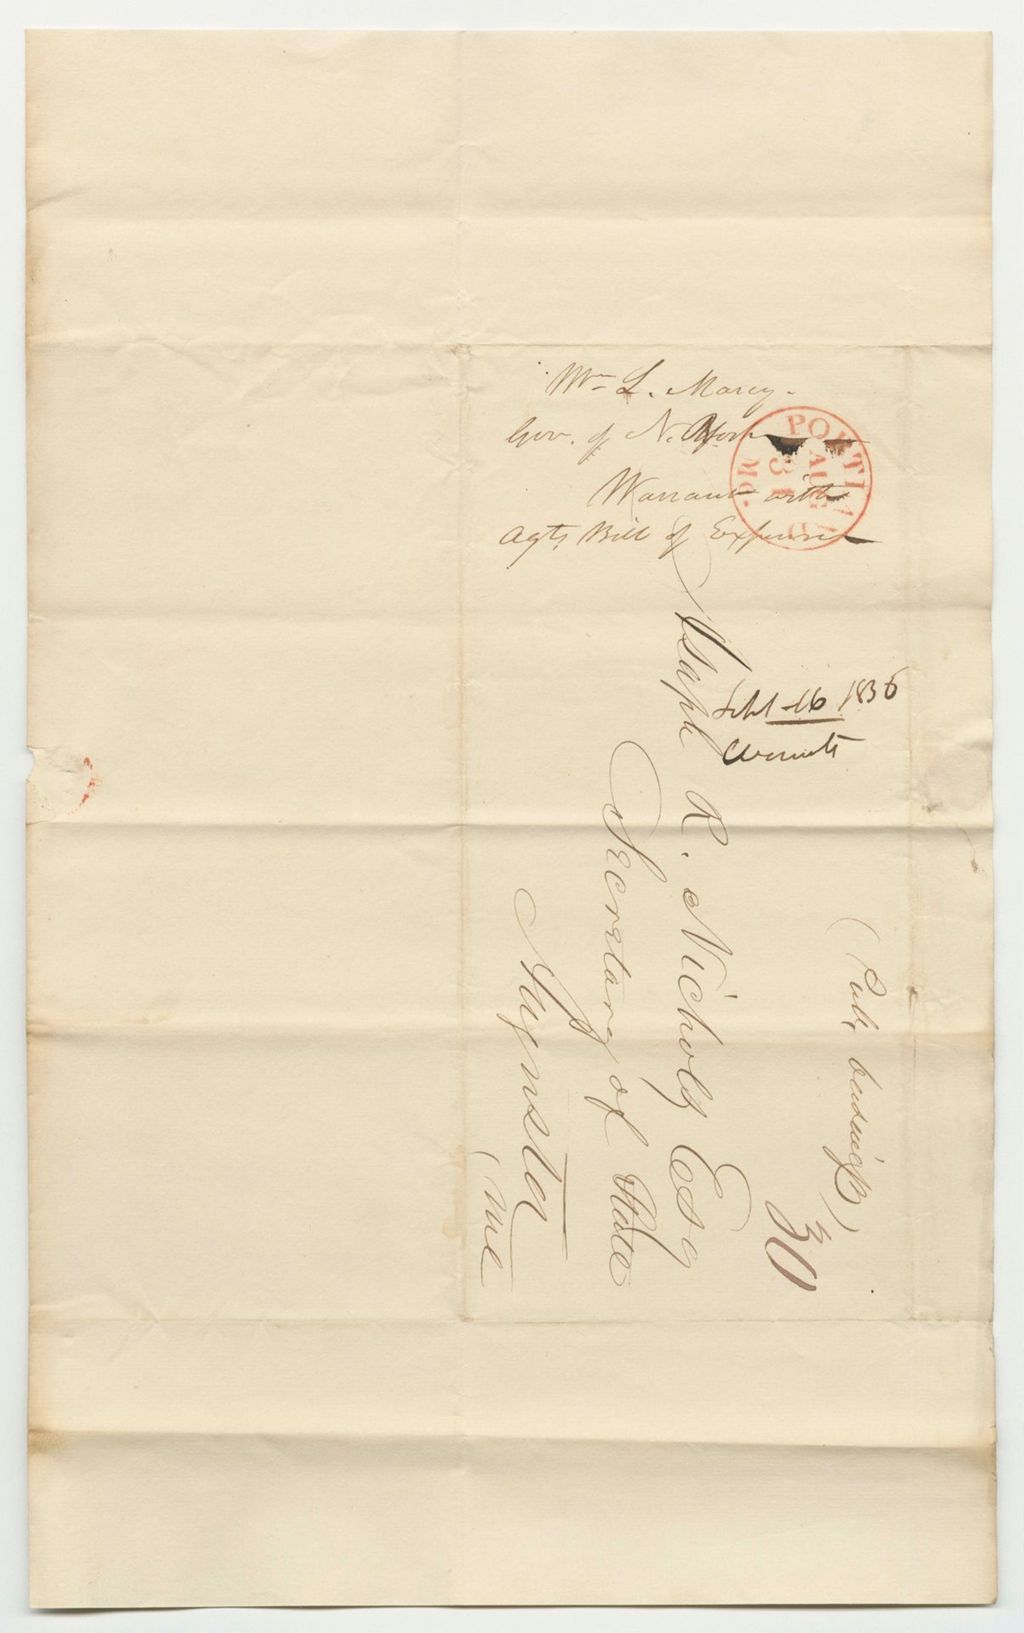 Wm L. Marcy.
Gov. of N. York
Warrant with
Agts Bill of Expenses
PORTLAND
AUG
31
ME.
Sept 16 1836
Asaph R. Nichols Esq
Secretary of State
Augusta
(Me
(Pub, business)
30